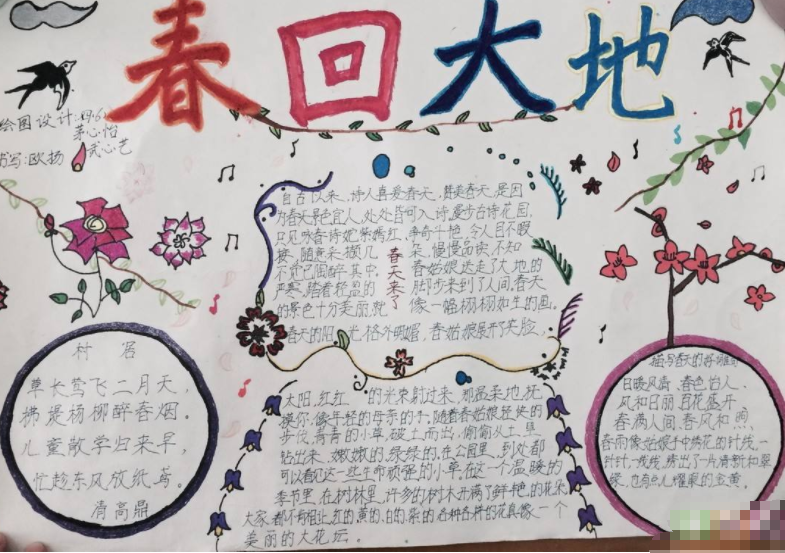 春回大地
绘图设计:四·6
茅心怡
书写:欧扬 武心艺
自古以来,诗人喜爱春天,赞美春天,是因
为春天景色宜人,处处皆可入诗,漫步古诗花园,
只见咏春诗姹紫嫣红,争奇斗艳,令人目不暇
接,随意采撷几朵,慢慢品读,不知
不觉已陶醉其中,春姑娘送走了大地的
严寒,踏着轻盈的脚步来到了人间,春天
的景色十分美丽,就像一幅栩栩如生的画。
春天来了
春天的阳光格外明媚,春姑娘展开笑脸,
太阳,红红的光束射过来,那温柔地抚
摸你,像年轻的母亲的手。随着春姑娘轻快的
步伐,青青的小草,破土而出,偷偷从土里
钻出来,嫩嫩的,绿绿的,在公园里,到处都
可以看见这一些生命顽强的小草。在这一个温暖的
季节里,在树林里,许多的树木开满了鲜艳的花朵
大家都不肯相让,红的黄的,白的,紫的,各种各样的花真像一个
美丽的大花坛。
村居
草长莺飞二月天,
拂堤杨柳醉春烟。
儿童散学归来早,
忙趁东风放纸鸢。
清高鼎
描写春天的好词好句
日暖风清 春色怡人、
风和日丽 百花盛开
春满人间、春风和煦、
春雨像姑娘手中绣花的针线,一
针针,一线线,绣出了一片清新和翠
绿,也有点儿耀眼的金黄。